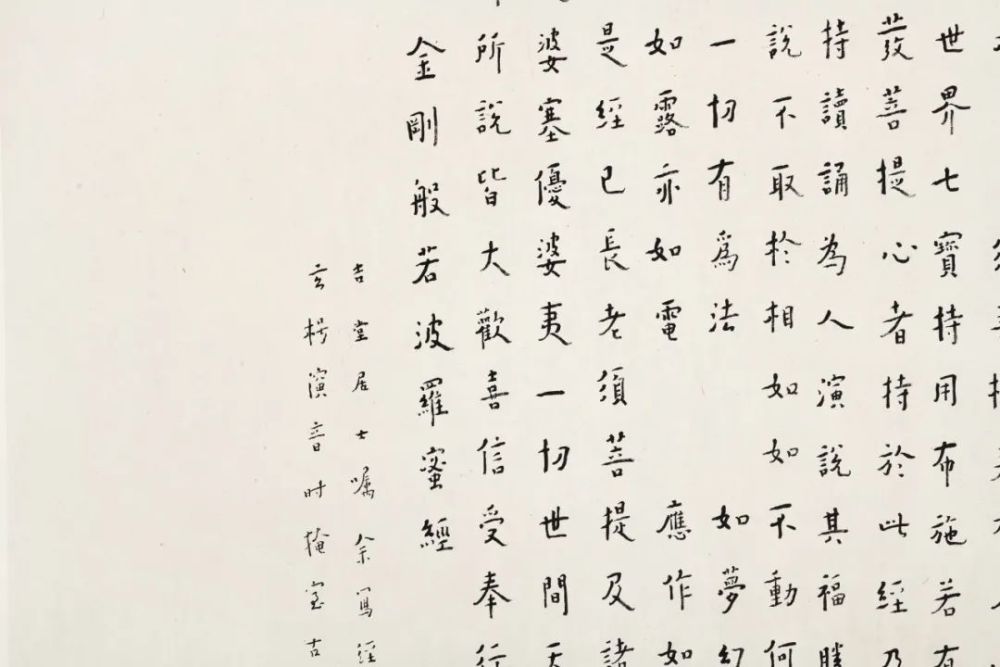 世界七寶持用布施若有
發菩提心者持於此經乃
持讀誦為人演說其福勝
說不取於相如如不動何
一切有爲法 如夢幻
如露亦如電 應作如
是經已長老須菩提及諸
婆塞優婆夷一切世間天
所說皆大歡喜信受奉行
金剛般若波羅蜜經
堂居士嘱余寫經
玄樗演音时掩室古